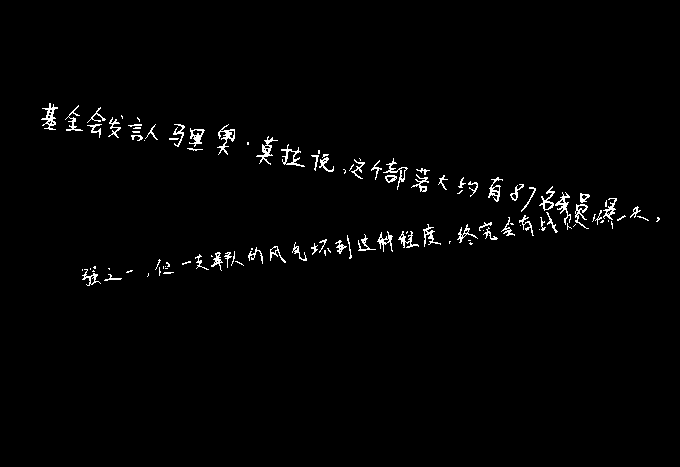 基金会发言人马里奥·莫拉说,这个部落大约有87名成员
强之一,但一支军队的风气坏到这种程度,终究会有战败爆一天,